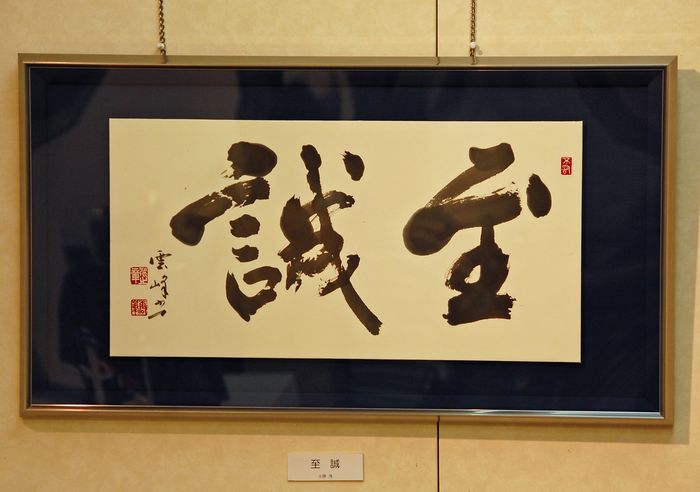 至誠
雲峰書
至誠